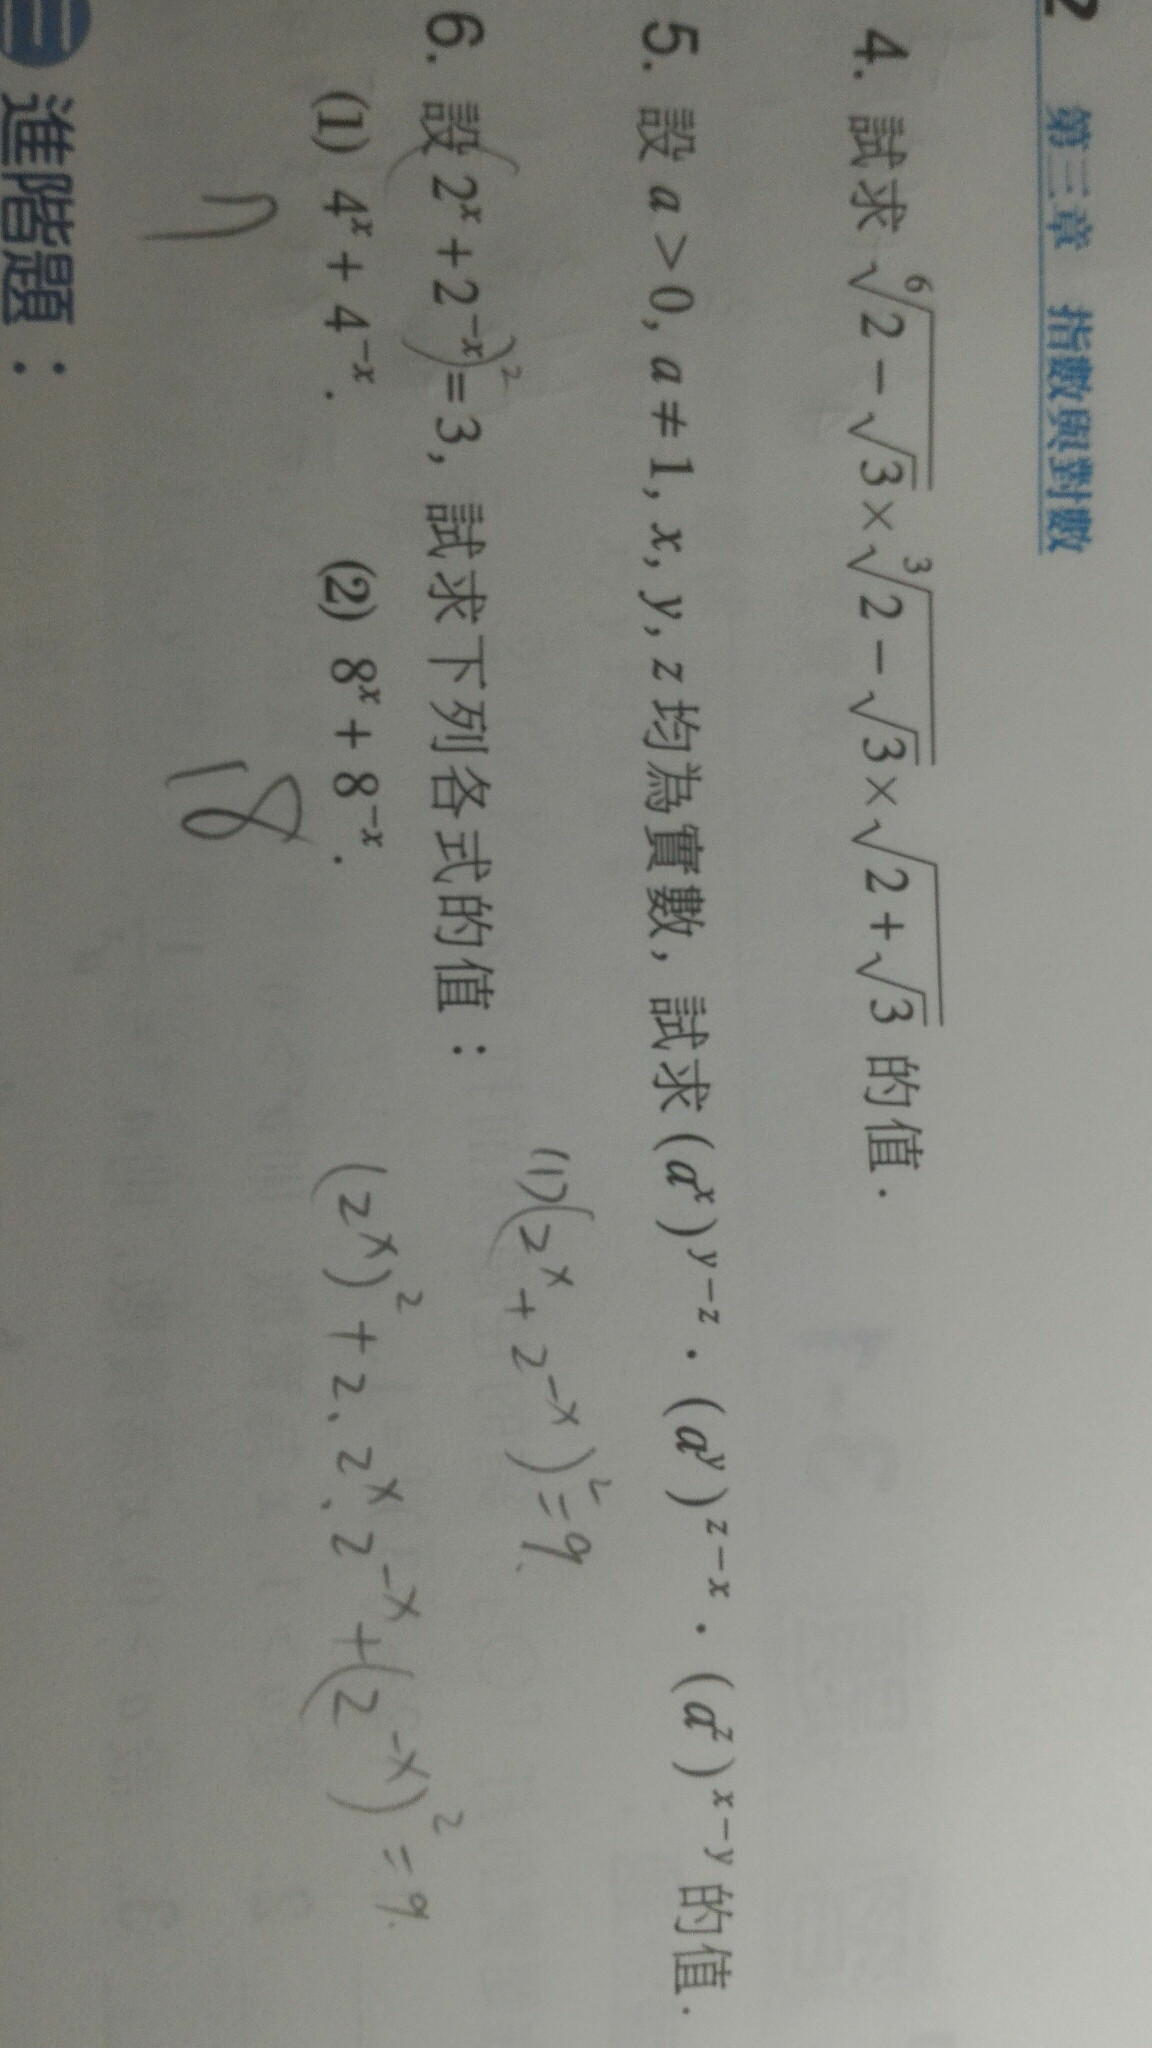 2 第三章 指數與對數
4. 試求 ⁶√(2−√3) × ³√(2−√3) × √(2+√3) 的值.
5. 設 a > 0, a ≠ 1, x, y, z 均為實數, 試求 (aˣ)ʸ⁻ᶻ · (aʸ)ᶻ⁻ˣ · (aᶻ)ˣ⁻ʸ 的值.
(1) (2ˣ + 2⁻ˣ)² = 9.
6. 設 (2ˣ + 2⁻ˣ)² = 3, 試求下列各式的值：
(1) 4ˣ + 4⁻ˣ. (2) 8ˣ + 8⁻ˣ.
(2ˣ)² + 2.2ˣ.2⁻ˣ + (2⁻ˣ)² = 9.
7 18
三 進階題：